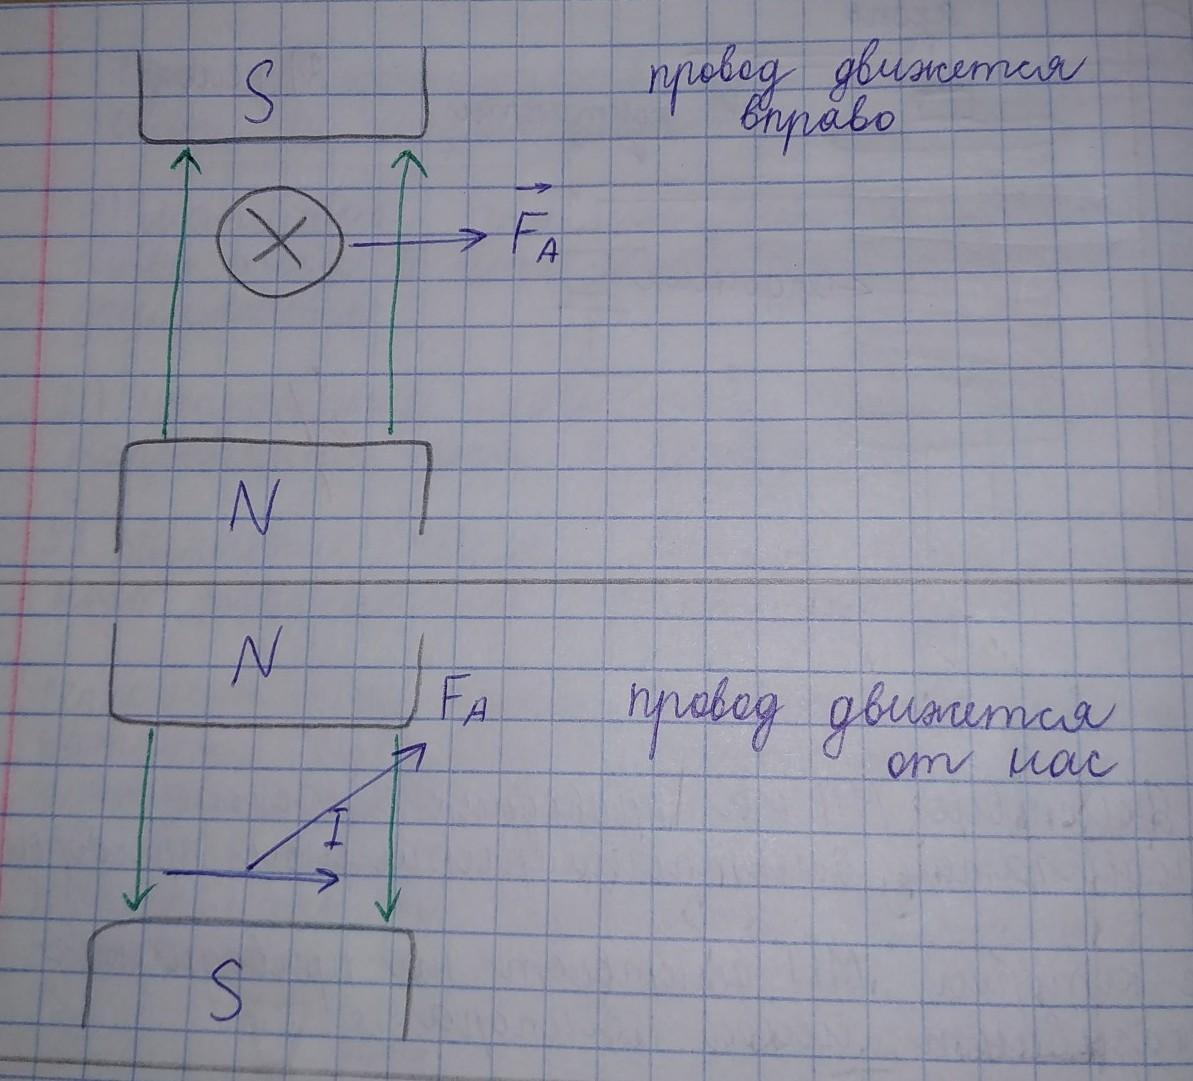 S
провод движется
вправо
F_A
N
N
F_A
провод движется
от нас
I
S